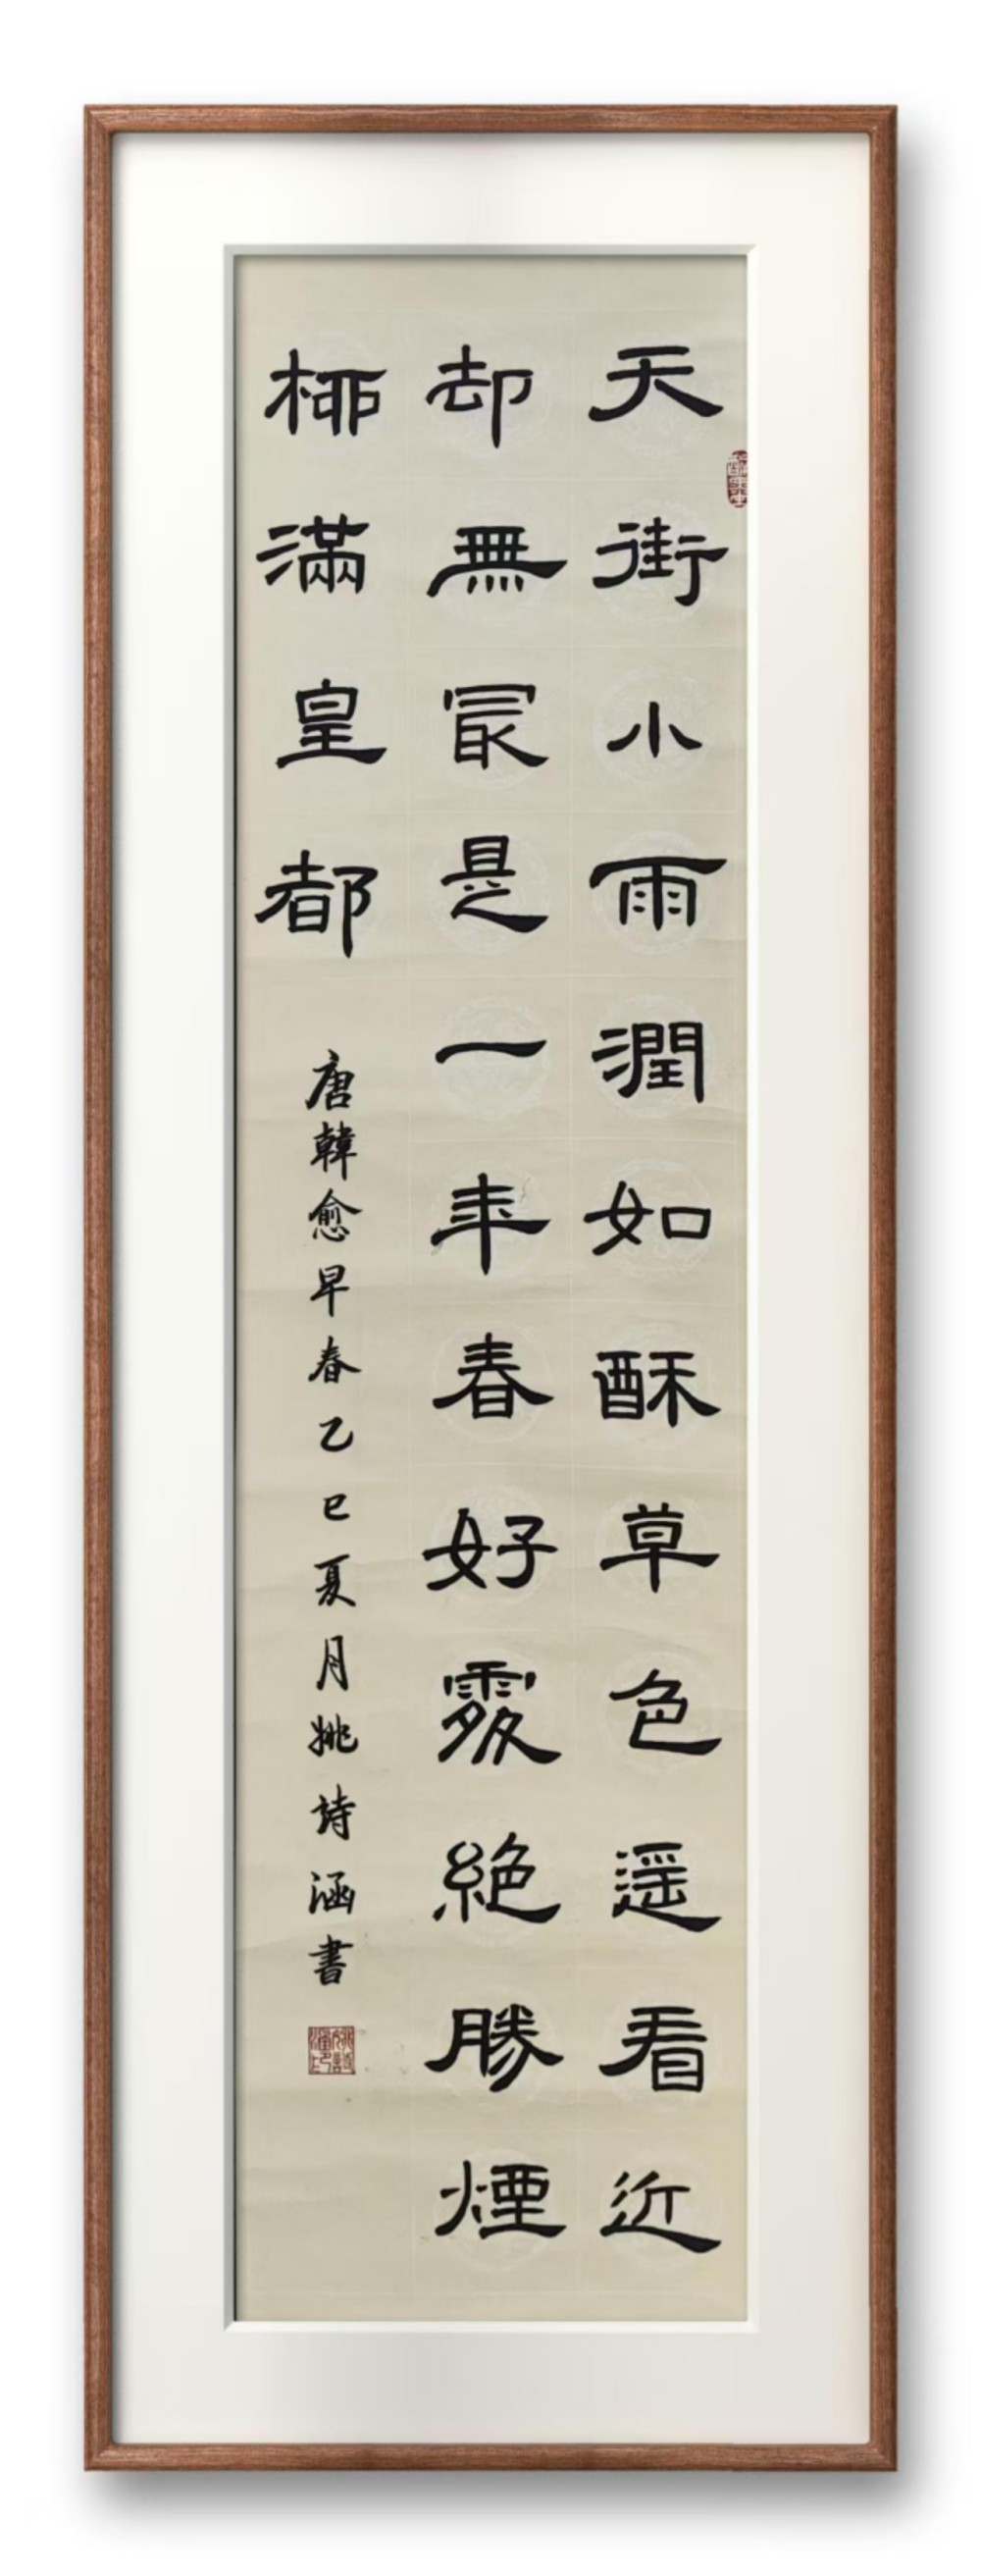 天街小雨潤如酥草色遥看近
却無冣是一年春好處絶勝煙
桺滿皇都
唐韓愈早春乙巳夏月姚詩涵書
姚詩涵印